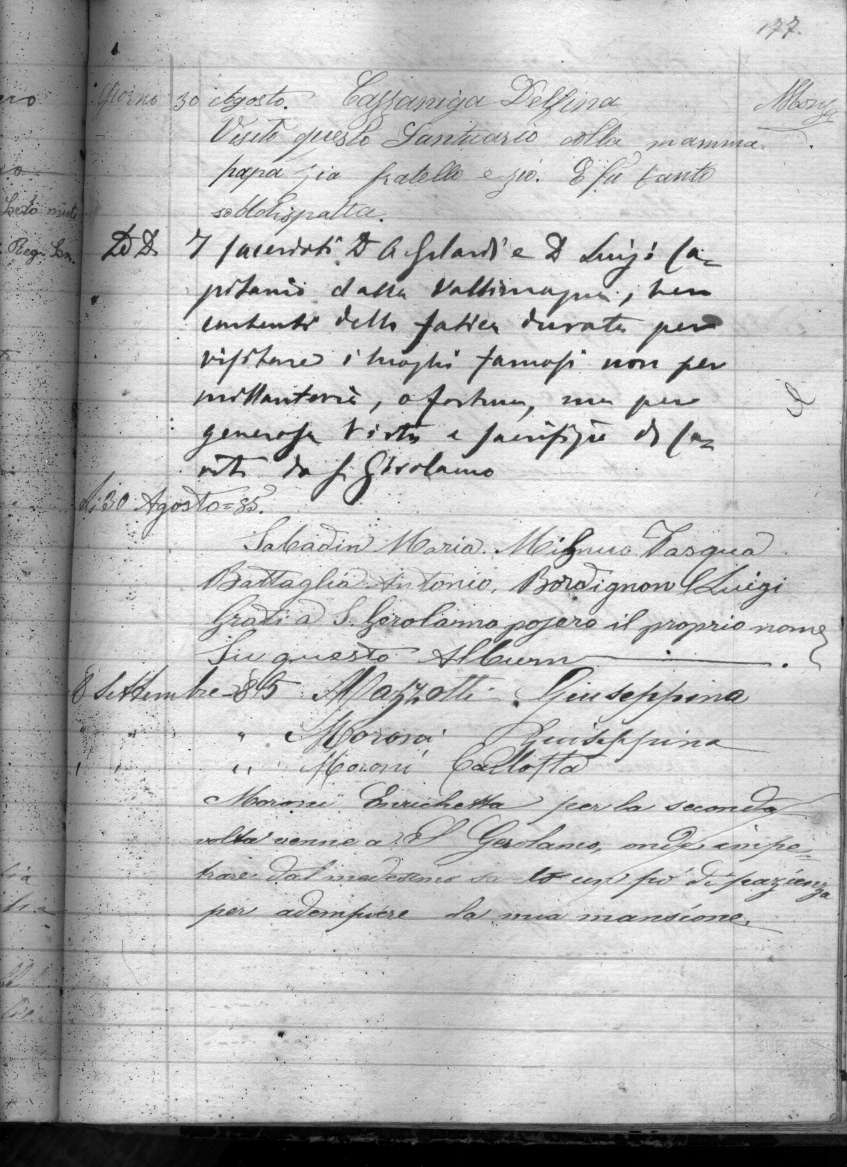 177.
Giorno 30 Agosto. Cazzaniga Delfina
Visitò questo Santuario colla mamma
papà zia fratello e zio. E fu tanto
soddisfatta.
DD I sacerdoti D A Gelardi e D Luigi Ca-
pitanio dalla Vallimagna, ben
contenti della fatica durata per
visitare i luoghi famosi non per
millanteria, o fortuna, ma per
generosa virtù e sacrifizio di ca-
rità da S. Girolamo
Li 30 Agosto = 85.
Sabadin Maria. Pasqua
Battaglia Antonio, Bordignon Luigi
Grati a S. Gerolamo posero il proprio nome
Su questo Album
8 Settembre - 85 Mazzotti Giuseppina
" " " Moroni Giuseppina
" " " Moroni Carlotta
Moroni Enrichetta per la seconda
volta venne a S. Gerolamo, onde impe-
trare dal medesimo un po' di pazienza
per adempiere la mia mansione.